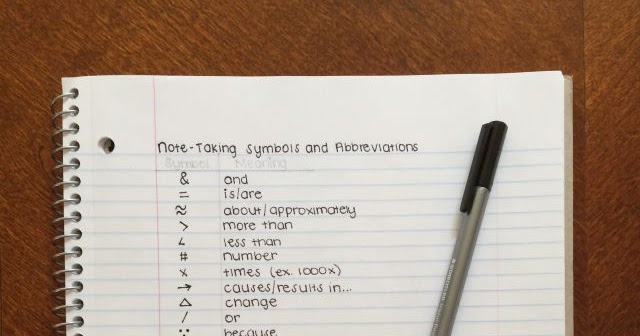 Note-Taking Symbols and Abbreviations
Symbol Meaning
& and
= is/are
≈ about/approximately
> more than
< less than
# number
x times (ex. 1000x)
→ causes/results in...
△ change
/ or
∵ because